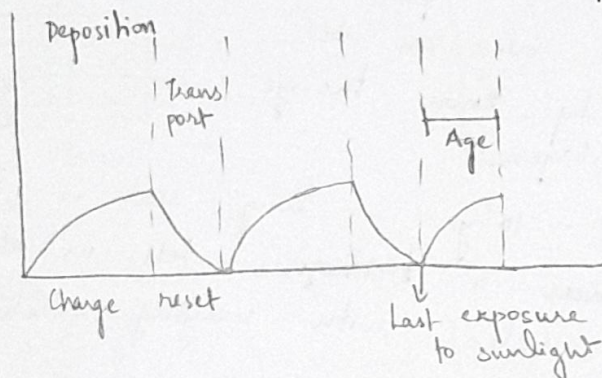 Deposition
Trans
port
Age
Charge reset
Last exposure
to sunlight